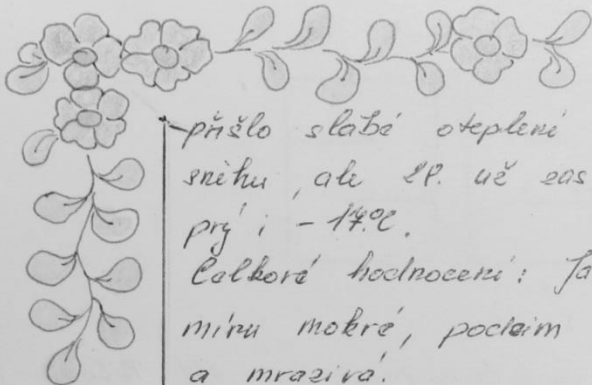 přišlo slabé oteplení
sněhu, ale 28. už zas
prý i -17°C.
Celkové hodnocení: Ja
míru mokré, podzim
a mrazivá.